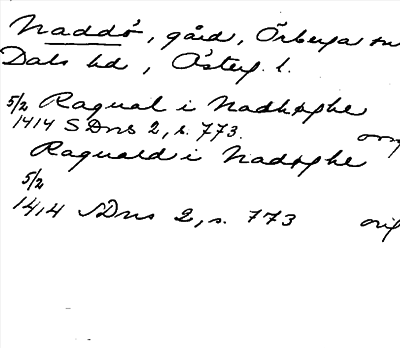 Naddö, gård, Örberga sn
Dals hd, Österg. l.
5/2 Ragual i Nadhøghe
1414 SDns 2, s. 773. orig
Raguald i Nadøghe
5/2
1414 SDns 2, s. 773 orig